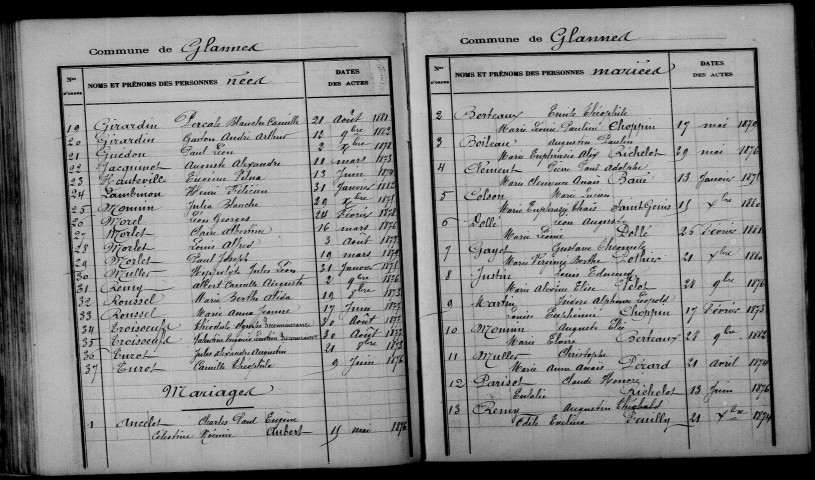 Commune de Glannes
Nos D'ORDRE
NOMS ET PRÉNOMS DES PERSONNES nées
DATES DES ACTES
19 Girardin Blanche Camille 21 Août 1881
20 Girardin Gaston André Arthur 12 9bre 1882
21 Guédon Paul Léon 2 Xbre 1878
22 Jacquinot Auguste Alexandre 11 mars 1873
23 Eugénie 13 Juin 1874
24 Lambinon Henri Félicien 31 Janvier 1882
25 Monnin Julia Blanche 29 Xbre
26 Morel Léon Georges 24 Février 1878
27 Morlet Claire Albertine 16 mars 1876
28 Morlet Louis Alfred 3 Août
29 Morlet Paul Joseph 19 mars
30 Muller Jules Léon 31 Janvier
31 Remy Albert Camille Auguste 2 9bre 1876
32 Roussel Marie Berthe Alida 19 8bre 1873
33 Roussel Marie Anna Jeanne 17 Juin 1877
34 30 Août
35 30 Août
36 Turot Jules Alexandre Augustin 21 8bre
37 Turot Camille Théophile 9 Juin 1876
Mariages
1 Ancelot Charles Paul Eugène
Célestine Noémie Aubert 15 mai 1876
Commune de Glannes
Nos D'ORDRE
NOMS ET PRÉNOMS DES PERSONNES mariées
DATES DES ACTES
2 Berteaux Emile Théophile
Marie Léonie Pauline Choppin 17 mai 1870
3 Boileau Augustin Paulin
Marie Euphrasie Alix Richelot 29 mai 1876
4 Clément
Marie Clémence Anaïs Baué 13 Janvier 1875
5 Colson
Marie Saint Genis 15 Xbre 1880
6 Dollé Léon Auguste
Marie Léonie Dollé 26 Février 1881
7 Gayet Gustave
Marie Virginie Berthe 21 Xbre 1880
8 Justin Louis Edmond
Marie Alexine Elise 28 9bre 1876
9 Martin Isidore Alphonse Léopold
Louise Euphémie Choppin 17 Février 1873
10 Monnin Auguste Elie
Marie Berteaux 28 9bre 1882
11 Muller Christophe
Marie Anna Anaïs Pérard 21 avril 1874
12 Parisot Claude Honoré
Eulalie Richelot 13 Juin 1876
13 Remy Augustin
Edile Evelina Feuilly 21 Xbre 1874